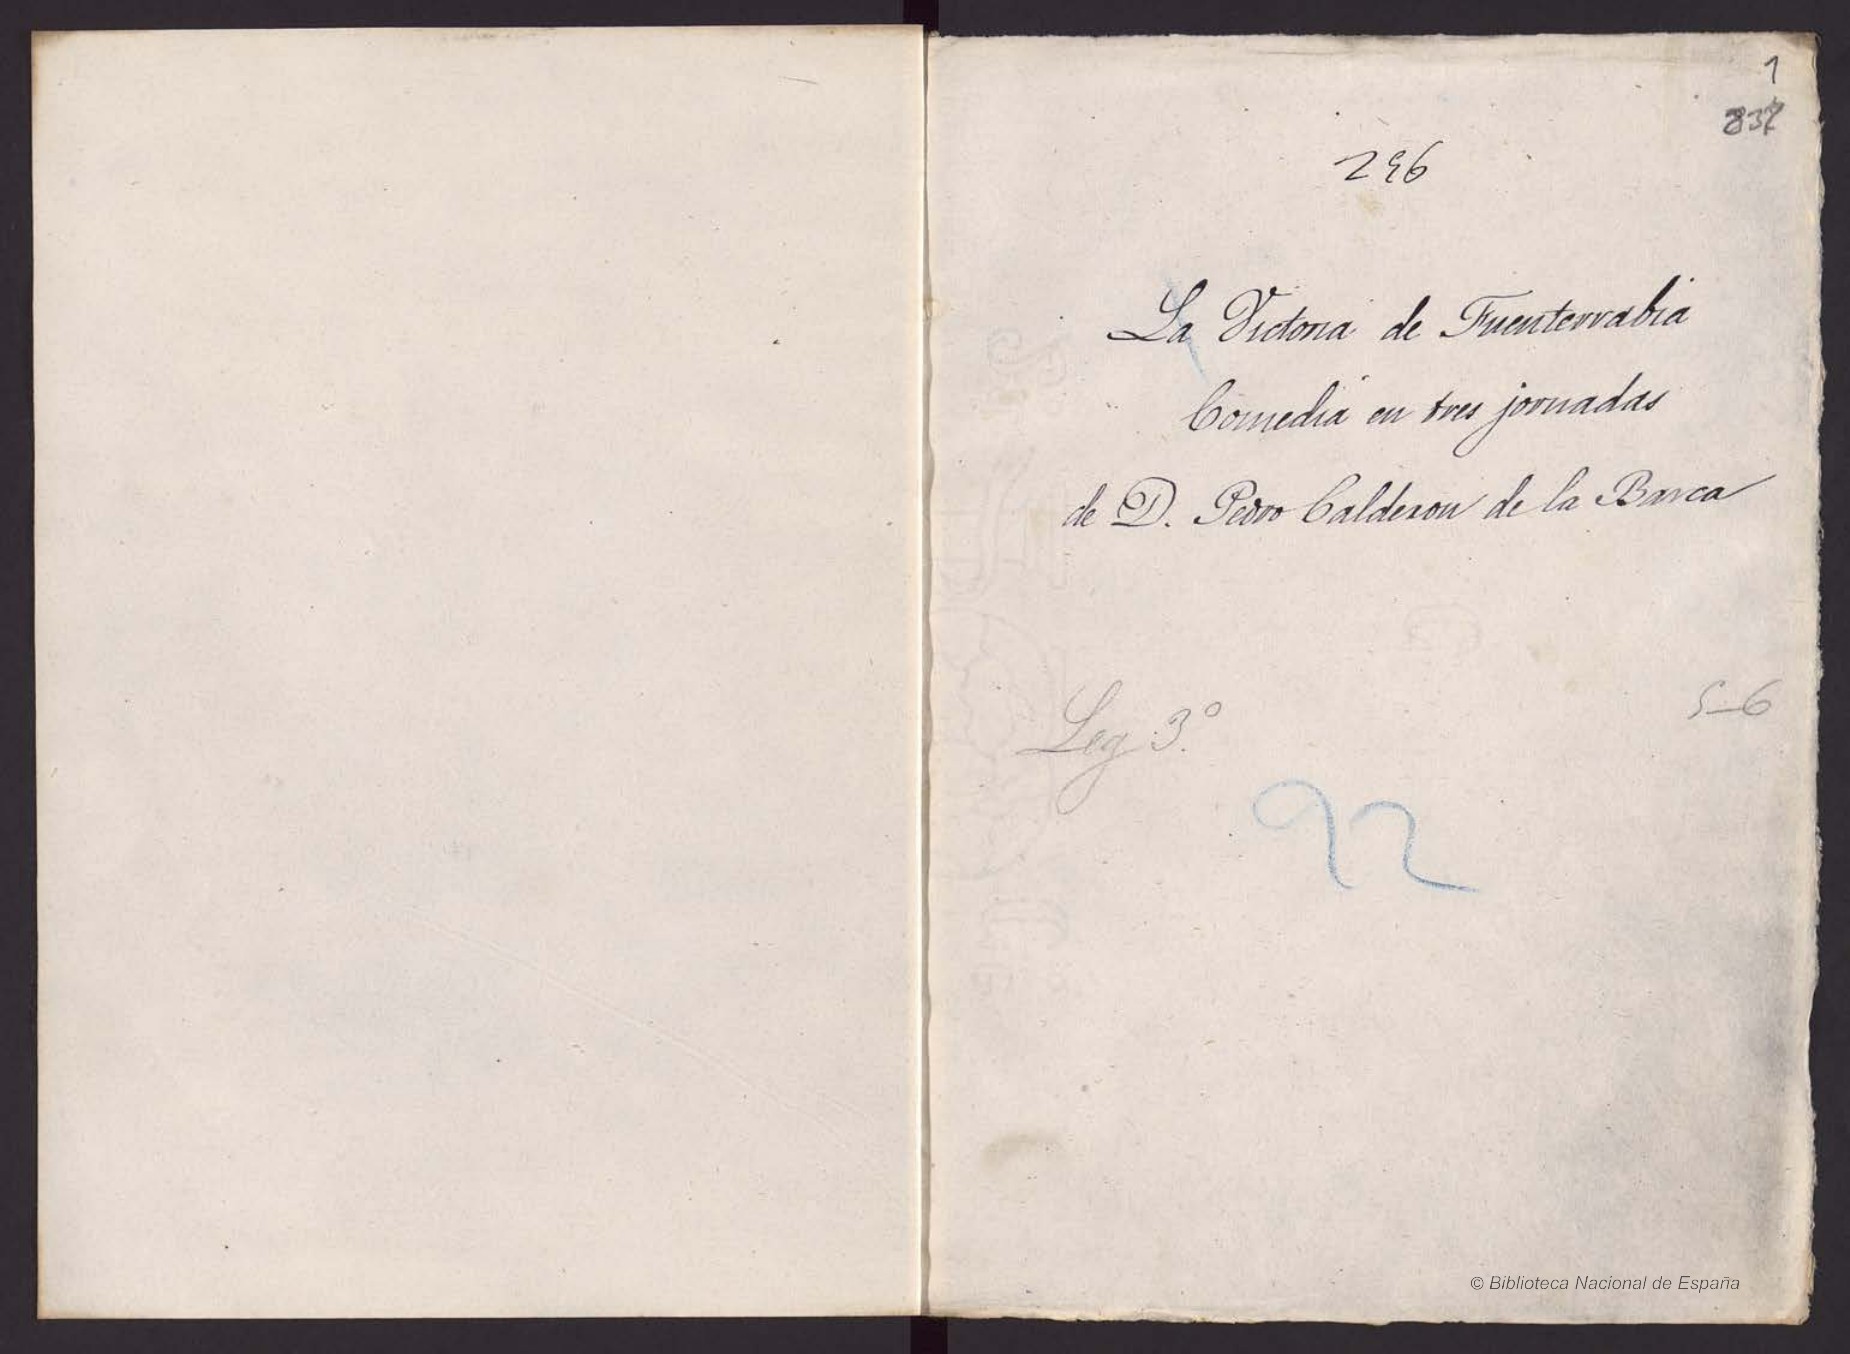 1
837
296
La Victoria de Fuenterrabia
Comedia en tres jornadas
de D. Pedro Calderon de la Barca
5-6
Leg 3.º
92
© Biblioteca Nacional de España